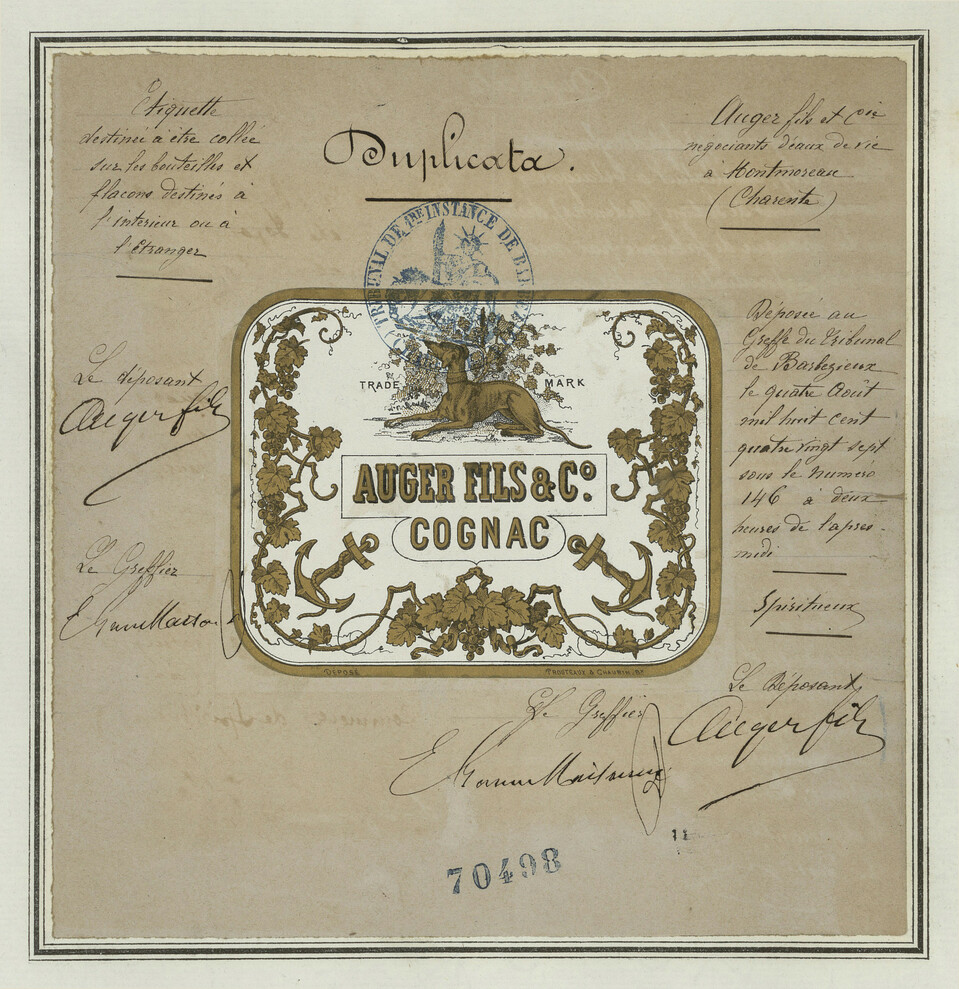 Etiquette
destinée à être collée
sur les bouteilles et
flacons destinés à
l'interieur ou à
l'étranger
Duplicata.
Auger fils et Cie
négociants d'eaux de vie
à Montmoreau
(Charente)
TRIBUNAL DE 1RE INSTANCE DE BARBE
Le déposant
Auger fils
Le Greffier
TRADE MARK
AUGER FILS & Co.
COGNAC
DÉPOSÉ
Déposé au
Greffe du Tribunal
de Barbezieux
le quatre Août
mil huit cent
quatre vingt sept
sous le numéro
146 à deux
heures de l'après-
midi
Spiritueux
Le Déposant,
Auger fils
Le Greffier
70498